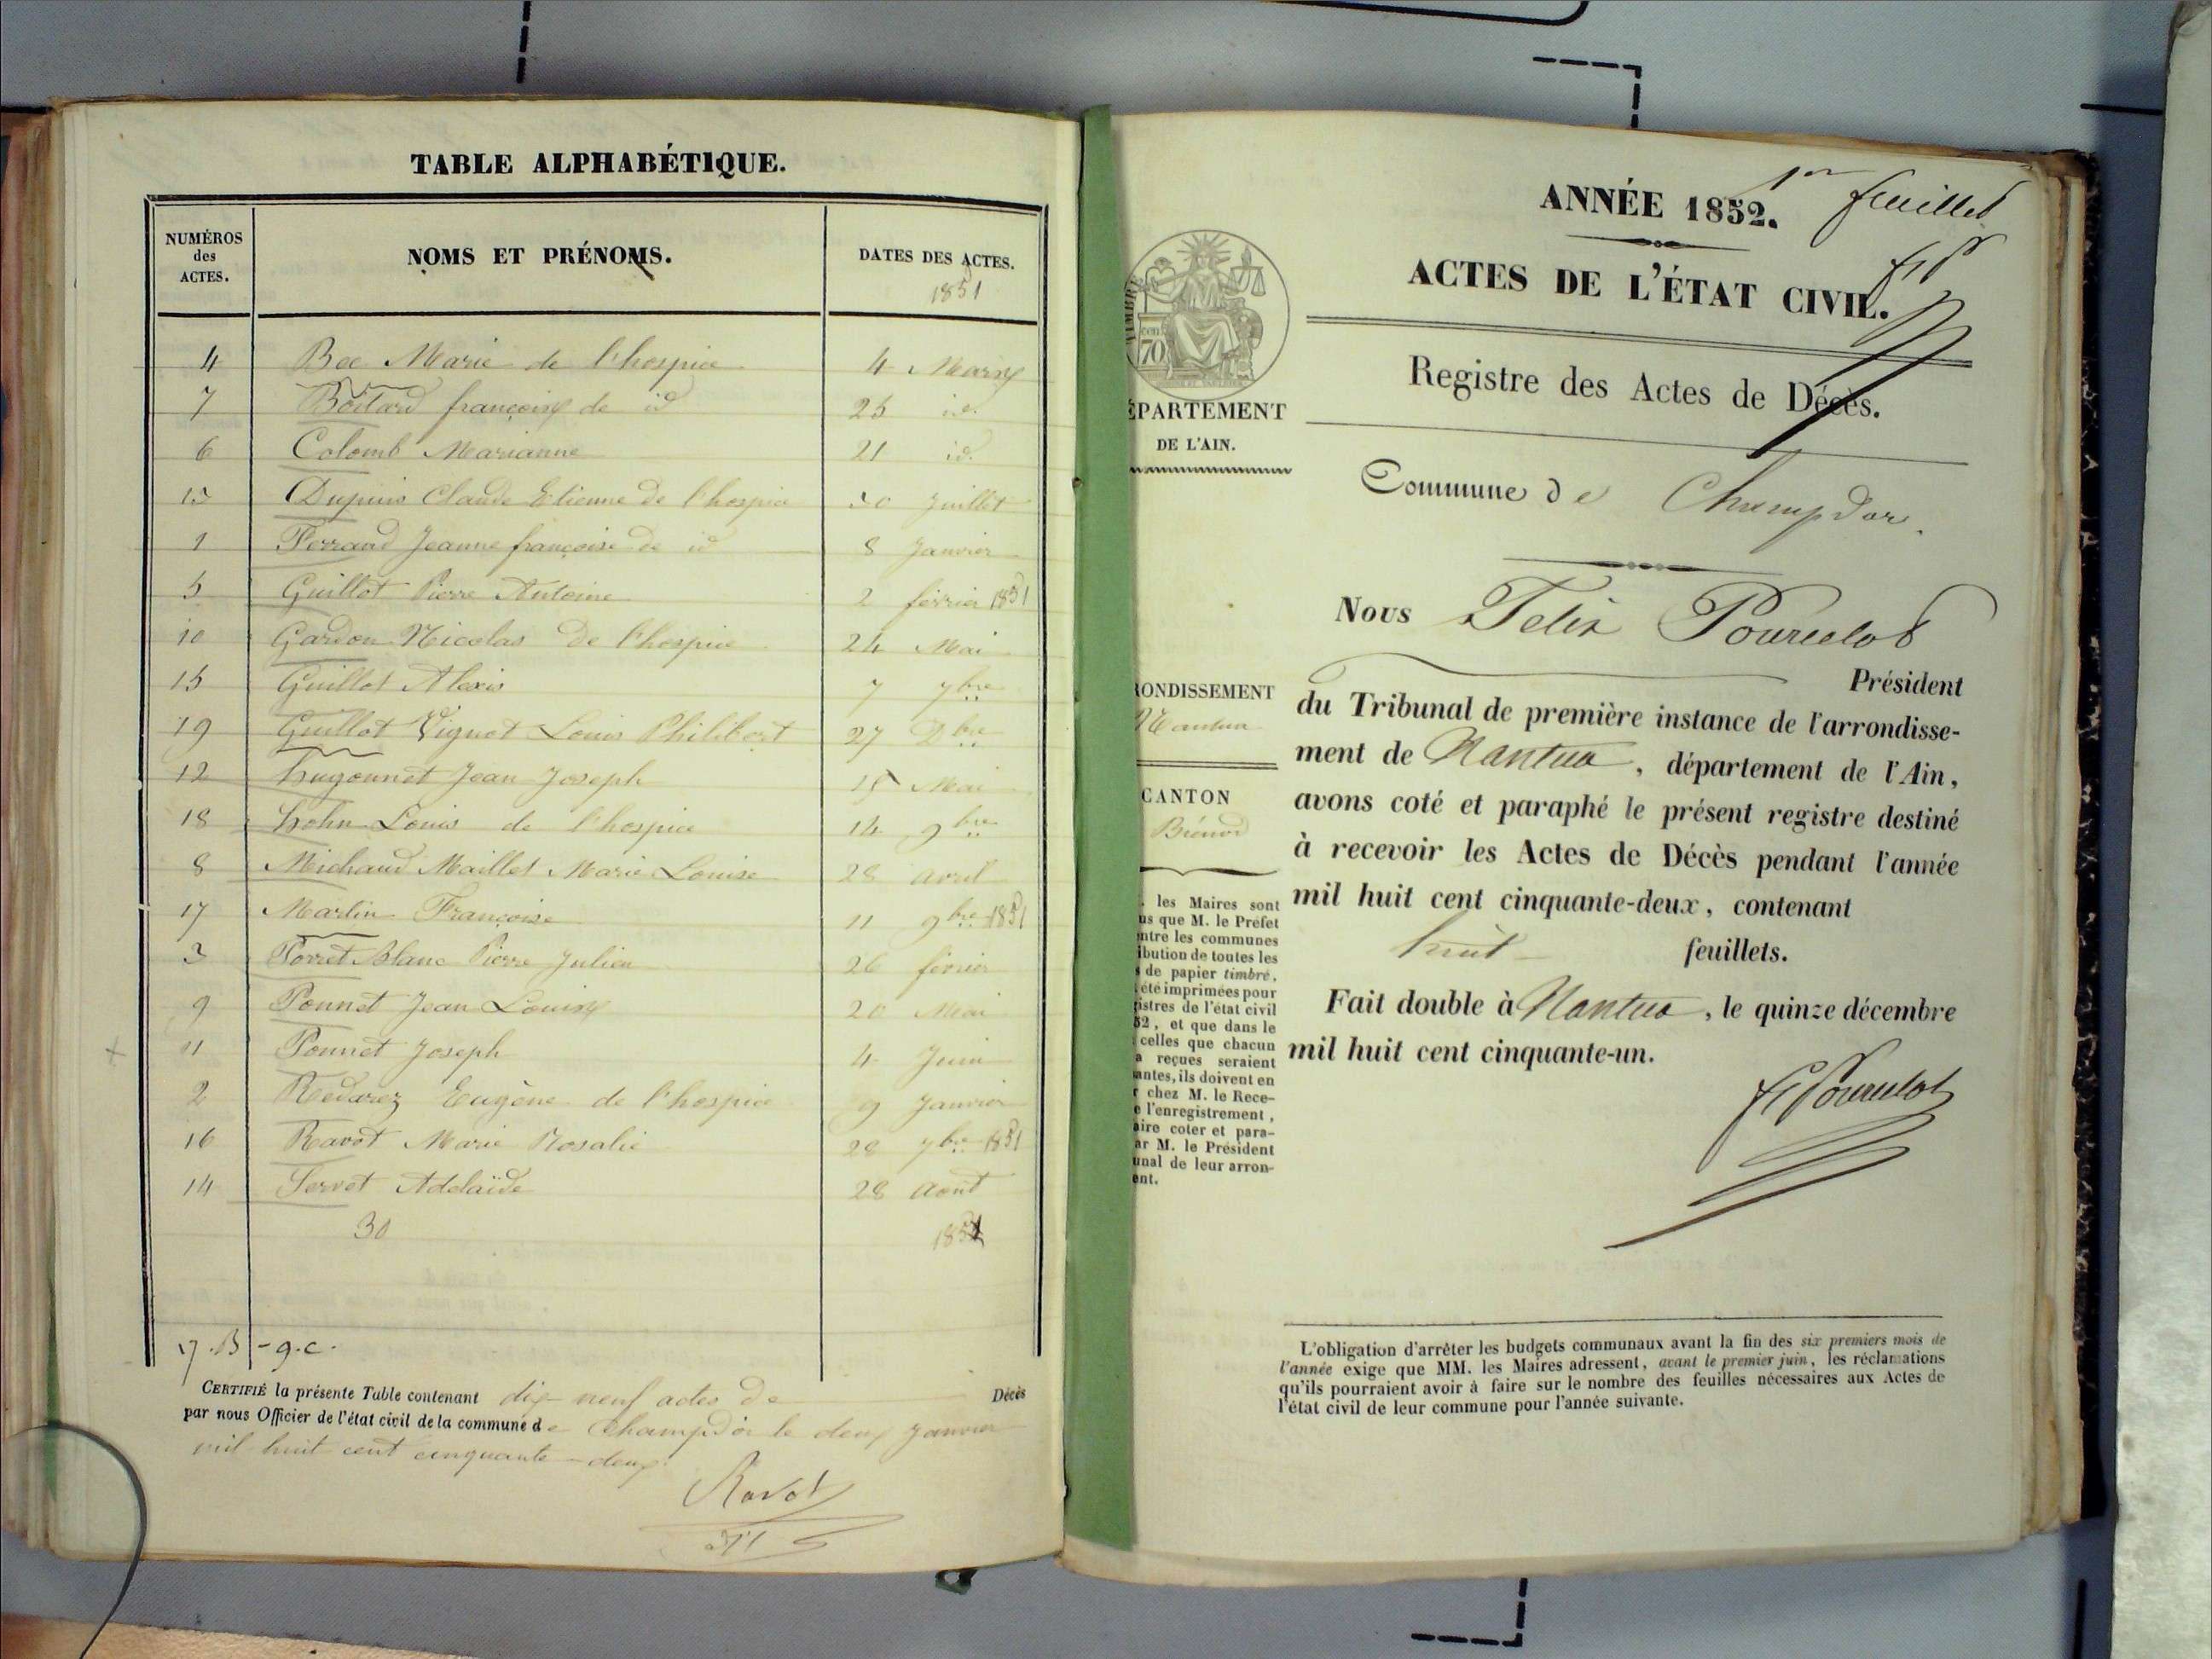 TABLE ALPHABÉTIQUE.
NUMÉROS des ACTES.
NOMS ET PRÉNOMS.
DATES DES ACTES.
1851
4 Bee Marie de l'hospice 4 Mars
7 Boitard françois de id 25 id.
6 Colomb Marianne 21 id.
13 Dupuis Claude Etienne de l'hospice 30 Juillet
1 Ferrand Jeanne françoise de id 8 Janvier
5 Guillot Pierre Antoine 2 février 1851
10 Gardon Nicolas De l'hospice 24 Mai
15 Guillot Alexis 7 7bre
19 Guillot Vignot Louis Philibert 27 Dbre
12 hugonnet Jean Joseph 15 Mai
18 hohn Louis de l'hospice 14 9bre
8 Michaud Maillet Marie Louise 28 avril
17 Martin Françoise 11 9bre 1851
3 Perret Blanc Pierre Julien 26 février
9 Ponnet Jean Louis 20 Mai
11 Ponnet Joseph 4 Juin
2 Redarez Eugène de l'hospice 9 Janvier
16 Ravot Marie Rosalie 28 7bre 1851
14 Servet Adelaïde 28 Août
30 1851
17.B - 9.c.
CERTIFIÉ la présente Table contenant dix-neuf actes de Décès
par nous Officier de l'état civil de la commune de Champdor le deux Janvier
mil huit cent cinquante-deux.
Ravot
1er feuillet
ANNÉE 1852.
f P
ACTES DE L'ÉTAT CIVIL.
TIMBRE
cen
70
Registre des Actes de Décès.
ÉPARTEMENT
DE L'AIN.
Commune de Champdor.
Nous Felix Pourcelot
Président
RONDISSEMENT
Nantua
du Tribunal de première instance de l'arrondisse-
ment de Nantua, département de l'Ain,
CANTON
Brénod
avons coté et paraphé le présent registre destiné
à recevoir les Actes de Décès pendant l'année
mil huit cent cinquante-deux, contenant
huit feuillets.
Fait double à Nantua, le quinze décembre
mil huit cent cinquante-un.
f Pourcelot
. les Maires sont
us que M. le Préfet
ntre les communes
ibution de toutes les
s de papier timbré,
été imprimées pour
istres de l'état civil
52, et que dans le
celles que chacun
a reçues seraient
antes, ils doivent en
r chez M. le Rece-
e l'enregistrement,
aire coter et para-
ar M. le Président
unal de leur arron-
ent.
L'obligation d'arrêter les budgets communaux avant la fin des six premiers mois de
l'année exige que MM. les Maires adressent, avant le premier juin, les réclamations
qu'ils pourraient avoir à faire sur le nombre des feuilles nécessaires aux Actes de
l'état civil de leur commune pour l'année suivante.